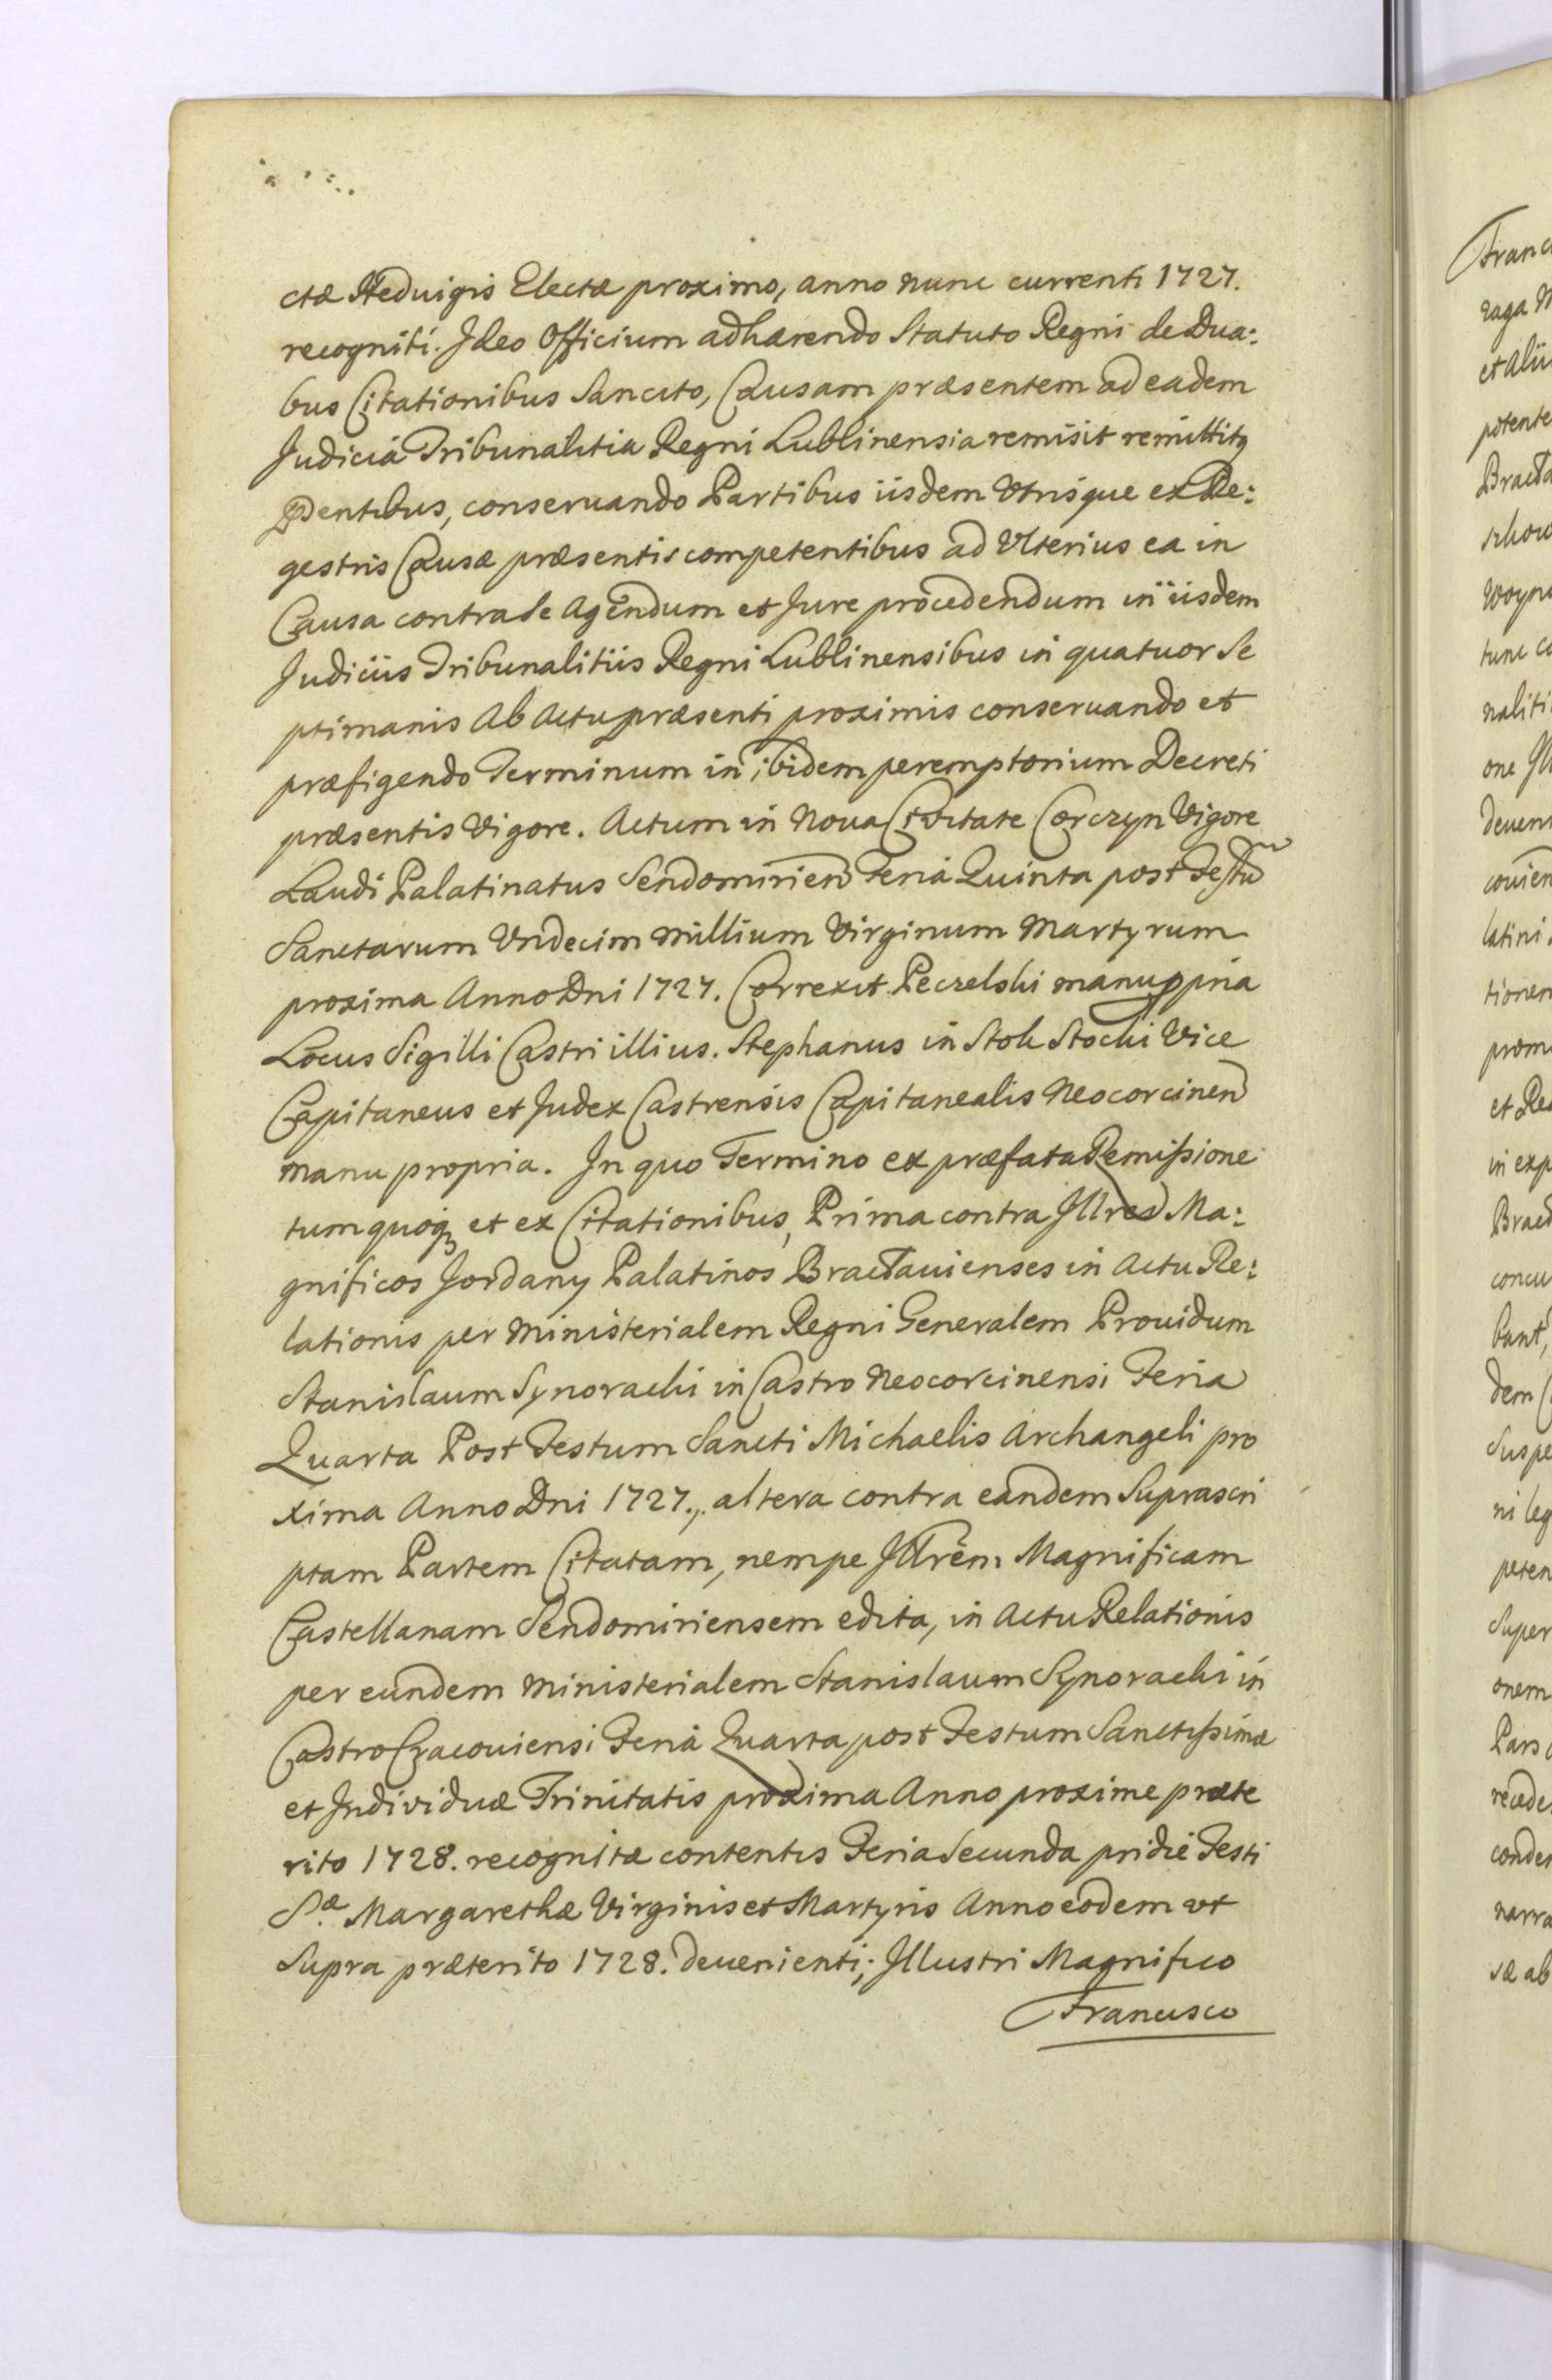 ctæ Heduigis Electæ proximo, anno nunc currenti 1727.
recogniti. Ideo Officium adhærendo Statuto Regni de Dua:
bus Citationibus Sancito, Causam præsentem ad eadem
Judicia Tribunalitia Regni Lublinensia remisit remittitq
Ppentibus, conseruando Partibus iisdem Vtrisque ex Re:
gestris Causæ præsentis competentibus ad Vlterius ea in
Causa contra se Agendum et Jure procedendum in iisdem
Judiciis Tribunalitiis Regni Lublinensibus in quatuor Se
ptimanis Ab Actu præsenti proximis conseruando et
præfigendo Terminum in ibidem peremptorium Decreti
præsentis Vigore. Actum in Noua Ciuitate Corczyn Vigore
Laudi Palatinatus Sendomirien Feria Quinta post Festu
Sanctarum Vndecim Millium Virginum Martyrum
proxima Anno Dni 1727. Correxit Peczelski manu ppria
Locus Sigilli Castri illius. Stephanus in Stok Stocki Vice
Capitaneus et Judex Castrensis Capitanealis Neocorcinen
manu propria. In quo Termino ex præfata Remissione
tum quoq et ex Citationibus, Prima contra Illres Ma:
gnificos Jordany Palatinos Braclauienses in Actu Re:
lationis per Ministerialem Regni Generalem Prouidum
Stanislaum Synoracki in Castro Neocorcinensi Feria
Quarta Post Festum Sancti Michaelis Archangeli pro
xima Anno Dni 1727., altera contra eandem Suprascri
ptam Partem Citatam, nempe Illrem Magnificam
Castellanam Sendomiriensem edita, in Actu Relationis
per eundem Ministerialem Stanislaum Synoracki in
Castro Cracouiensi Feria Quarta post Festum Sanctissimæ
et Individuæ Trinitatis proxima Anno proxime præte
rito 1728. recognitæ contentis Feria Secunda pridie Festi
Sæ Margarethæ Virginis et Martyris Anno eodem vt
Supra præterito 1728. deuenienti; Illustri Magnifico
Francisco